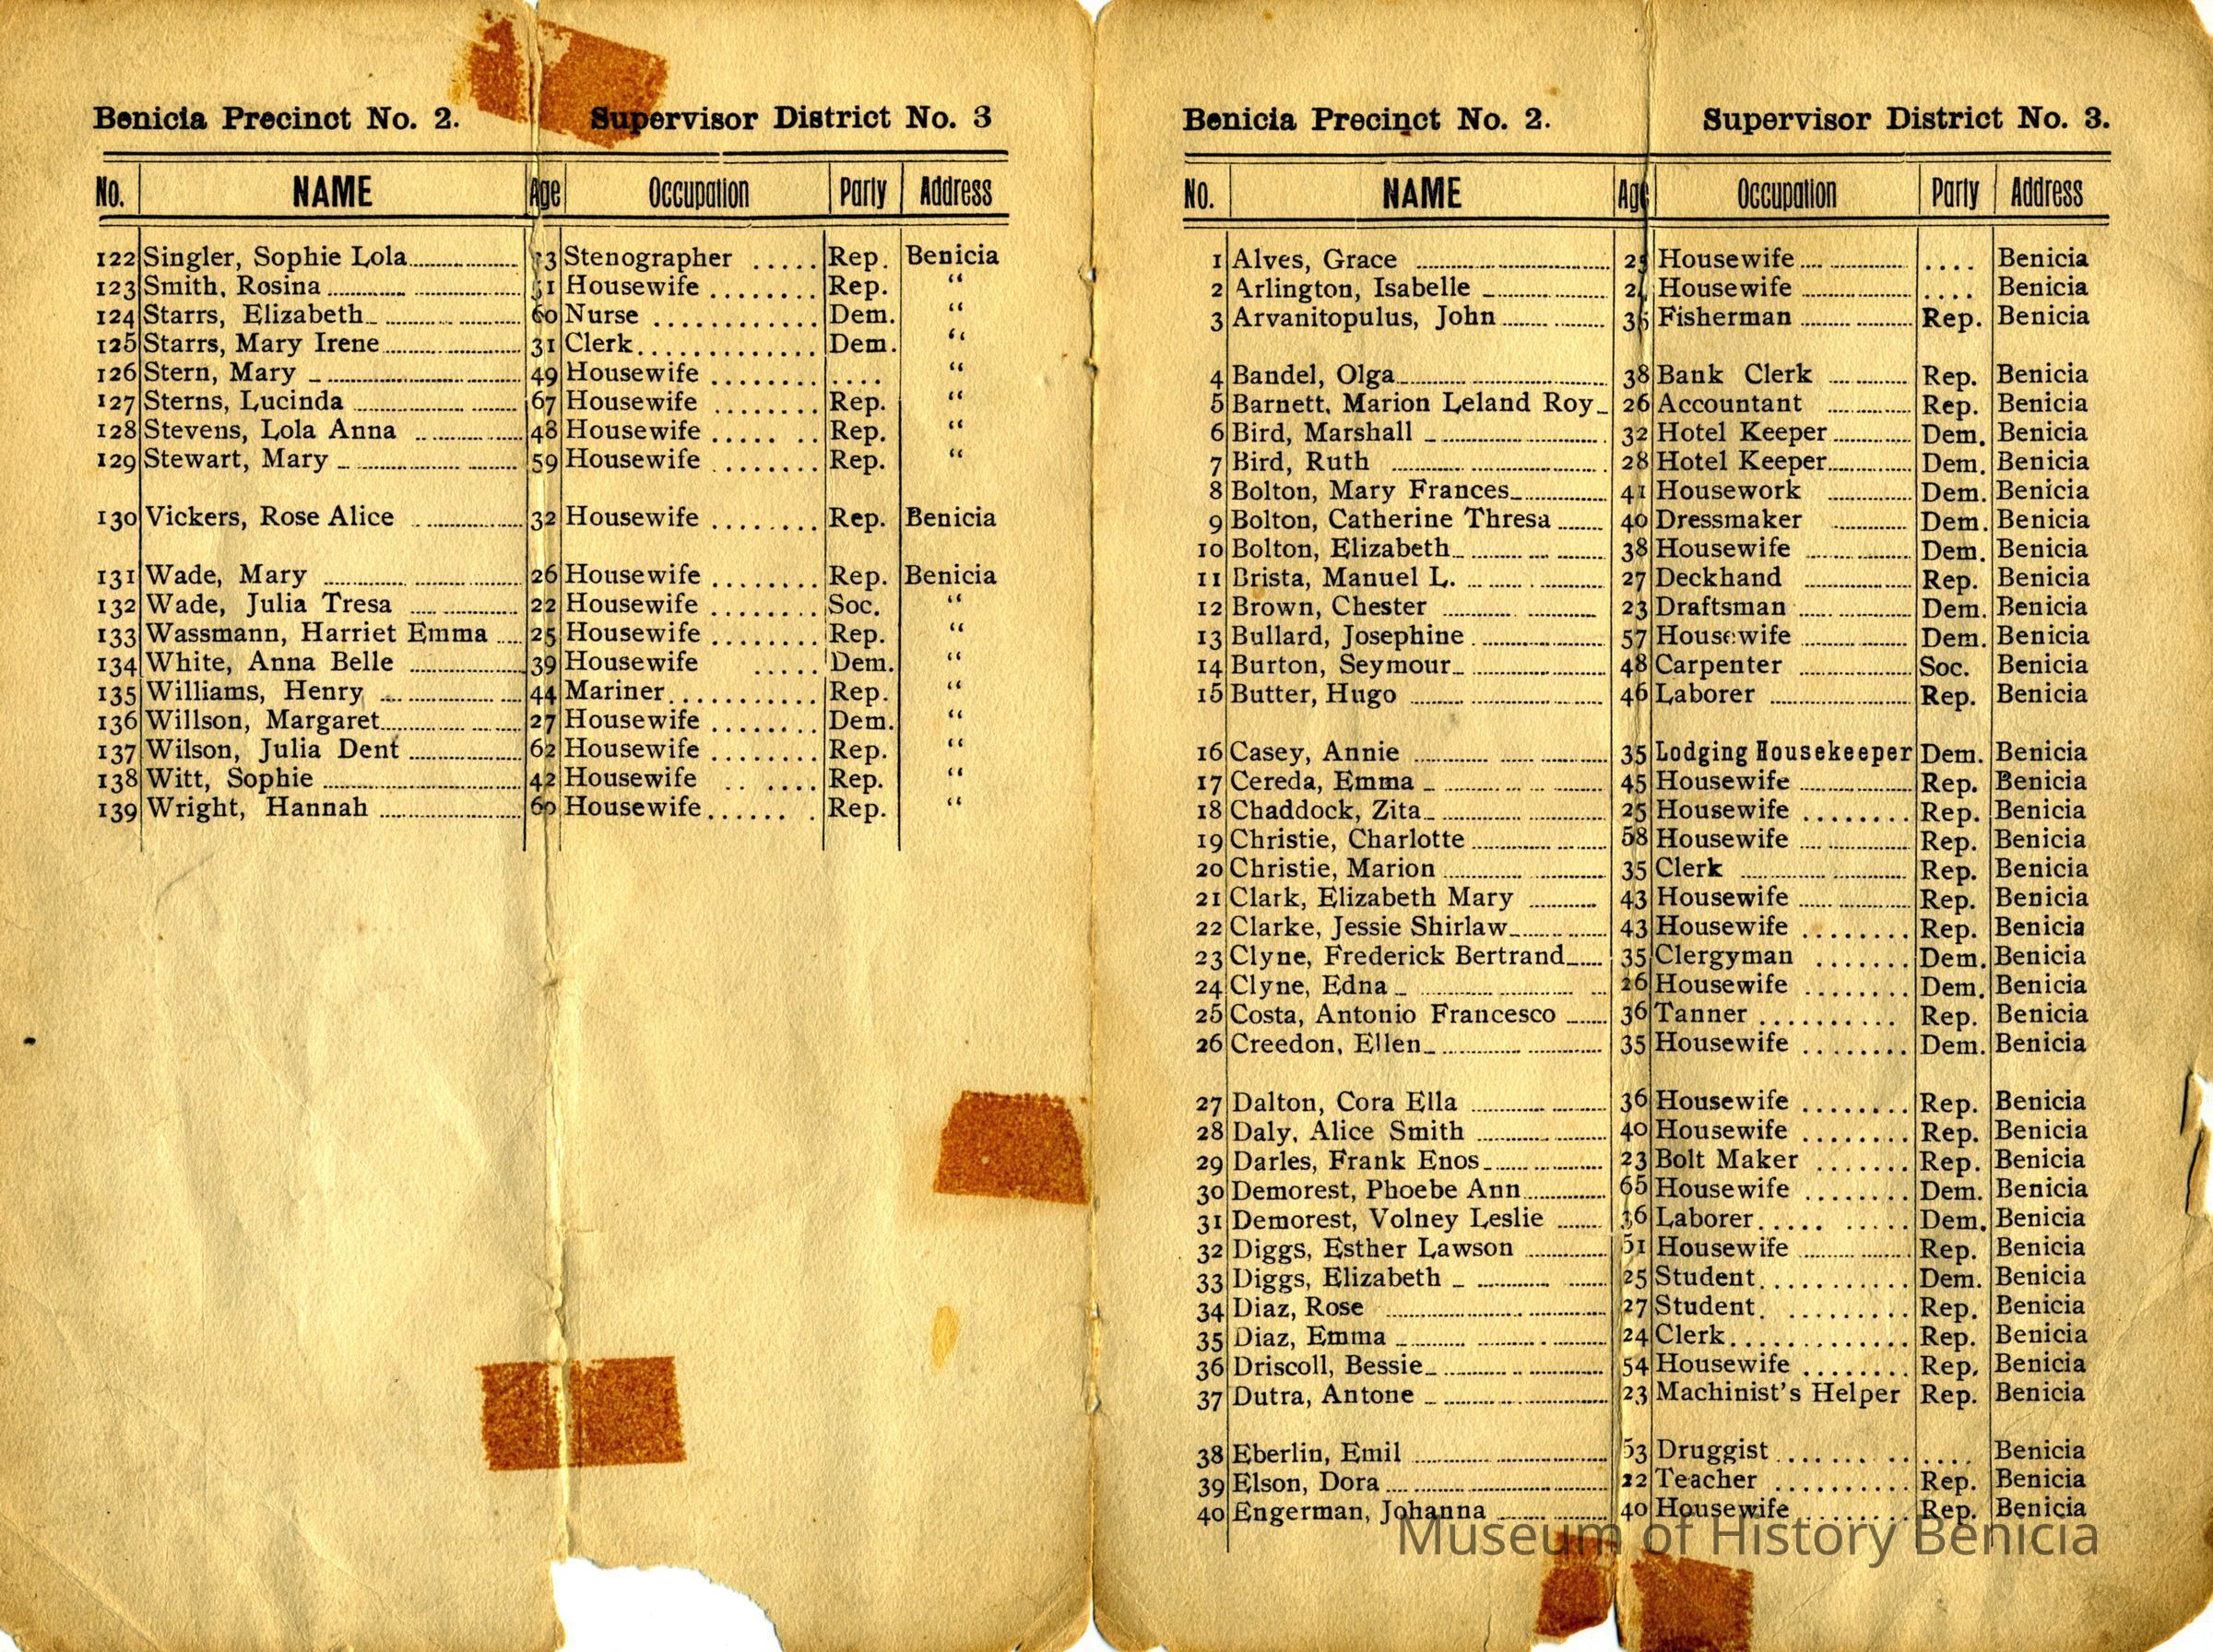 Benicia Precinct No. 2. Supervisor District No. 3
No. NAME Age Occupation Party Address
122 Singler, Sophie Lola 3 Stenographer Rep. Benicia
123 Smith, Rosina 51 Housewife Rep. “
124 Starrs, Elizabeth 60 Nurse Dem. “
125 Starrs, Mary Irene 31 Clerk Dem. “
126 Stern, Mary 49 Housewife .... “
127 Sterns, Lucinda 67 Housewife Rep. “
128 Stevens, Lola Anna 48 Housewife Rep. “
129 Stewart, Mary 59 Housewife Rep. “
130 Vickers, Rose Alice 32 Housewife Rep. Benicia
131 Wade, Mary 26 Housewife Rep. Benicia
132 Wade, Julia Tresa 22 Housewife Soc. “
133 Wassmann, Harriet Emma 25 Housewife Rep. “
134 White, Anna Belle 39 Housewife Dem. “
135 Williams, Henry 44 Mariner Rep. “
136 Willson, Margaret 27 Housewife Dem. “
137 Wilson, Julia Dent 62 Housewife Rep. “
138 Witt, Sophie 42 Housewife Rep. “
139 Wright, Hannah 60 Housewife Rep. “
Benicia Precinct No. 2. Supervisor District No. 3.
No. NAME Age Occupation Party Address
1 Alves, Grace Housewife .... Benicia
2 Arlington, Isabelle Housewife .... Benicia
3 Arvanitopulus, John Fisherman Rep. Benicia
4 Bandel, Olga 38 Bank Clerk Rep. Benicia
5 Barnett, Marion Leland Roy 26 Accountant Rep. Benicia
6 Bird, Marshall 32 Hotel Keeper Dem. Benicia
7 Bird, Ruth 28 Hotel Keeper Dem. Benicia
8 Bolton, Mary Frances 41 Housework Dem. Benicia
9 Bolton, Catherine Thresa 40 Dressmaker Dem. Benicia
10 Bolton, Elizabeth 38 Housewife Dem. Benicia
11 Brista, Manuel L. 27 Deckhand Rep. Benicia
12 Brown, Chester 23 Draftsman Dem. Benicia
13 Bullard, Josephine 57 Housewife Dem. Benicia
14 Burton, Seymour 48 Carpenter Soc. Benicia
15 Butter, Hugo 46 Laborer Rep. Benicia
16 Casey, Annie 35 Lodging Housekeeper Dem. Benicia
17 Cereda, Emma 45 Housewife Rep. Benicia
18 Chaddock, Zita 25 Housewife Rep. Benicia
19 Christie, Charlotte 58 Housewife Rep. Benicia
20 Christie, Marion 35 Clerk Rep. Benicia
21 Clark, Elizabeth Mary 43 Housewife Rep. Benicia
22 Clarke, Jessie Shirlaw 43 Housewife Rep. Benicia
23 Clyne, Frederick Bertrand 35 Clergyman Dem. Benicia
24 Clyne, Edna 26 Housewife Dem. Benicia
25 Costa, Antonio Francesco 36 Tanner Rep. Benicia
26 Creedon, Ellen 35 Housewife Dem. Benicia
27 Dalton, Cora Ella 36 Housewife Rep. Benicia
28 Daly, Alice Smith 40 Housewife Rep. Benicia
29 Darles, Frank Enos 23 Bolt Maker Rep. Benicia
30 Demorest, Phoebe Ann 65 Housewife Dem. Benicia
31 Demorest, Volney Leslie 36 Laborer Dem. Benicia
32 Diggs, Esther Lawson 51 Housewife Rep. Benicia
33 Diggs, Elizabeth 25 Student Dem. Benicia
34 Diaz, Rose 27 Student Rep. Benicia
35 Diaz, Emma 24 Clerk Rep. Benicia
36 Driscoll, Bessie 54 Housewife Rep. Benicia
37 Dutra, Antone 23 Machinist's Helper Rep. Benicia
38 Eberlin, Emil 53 Druggist .... Benicia
39 Elson, Dora 22 Teacher Rep. Benicia
40 Engerman, Johanna 40 Housewife Rep. Benicia
Museum of History Benicia